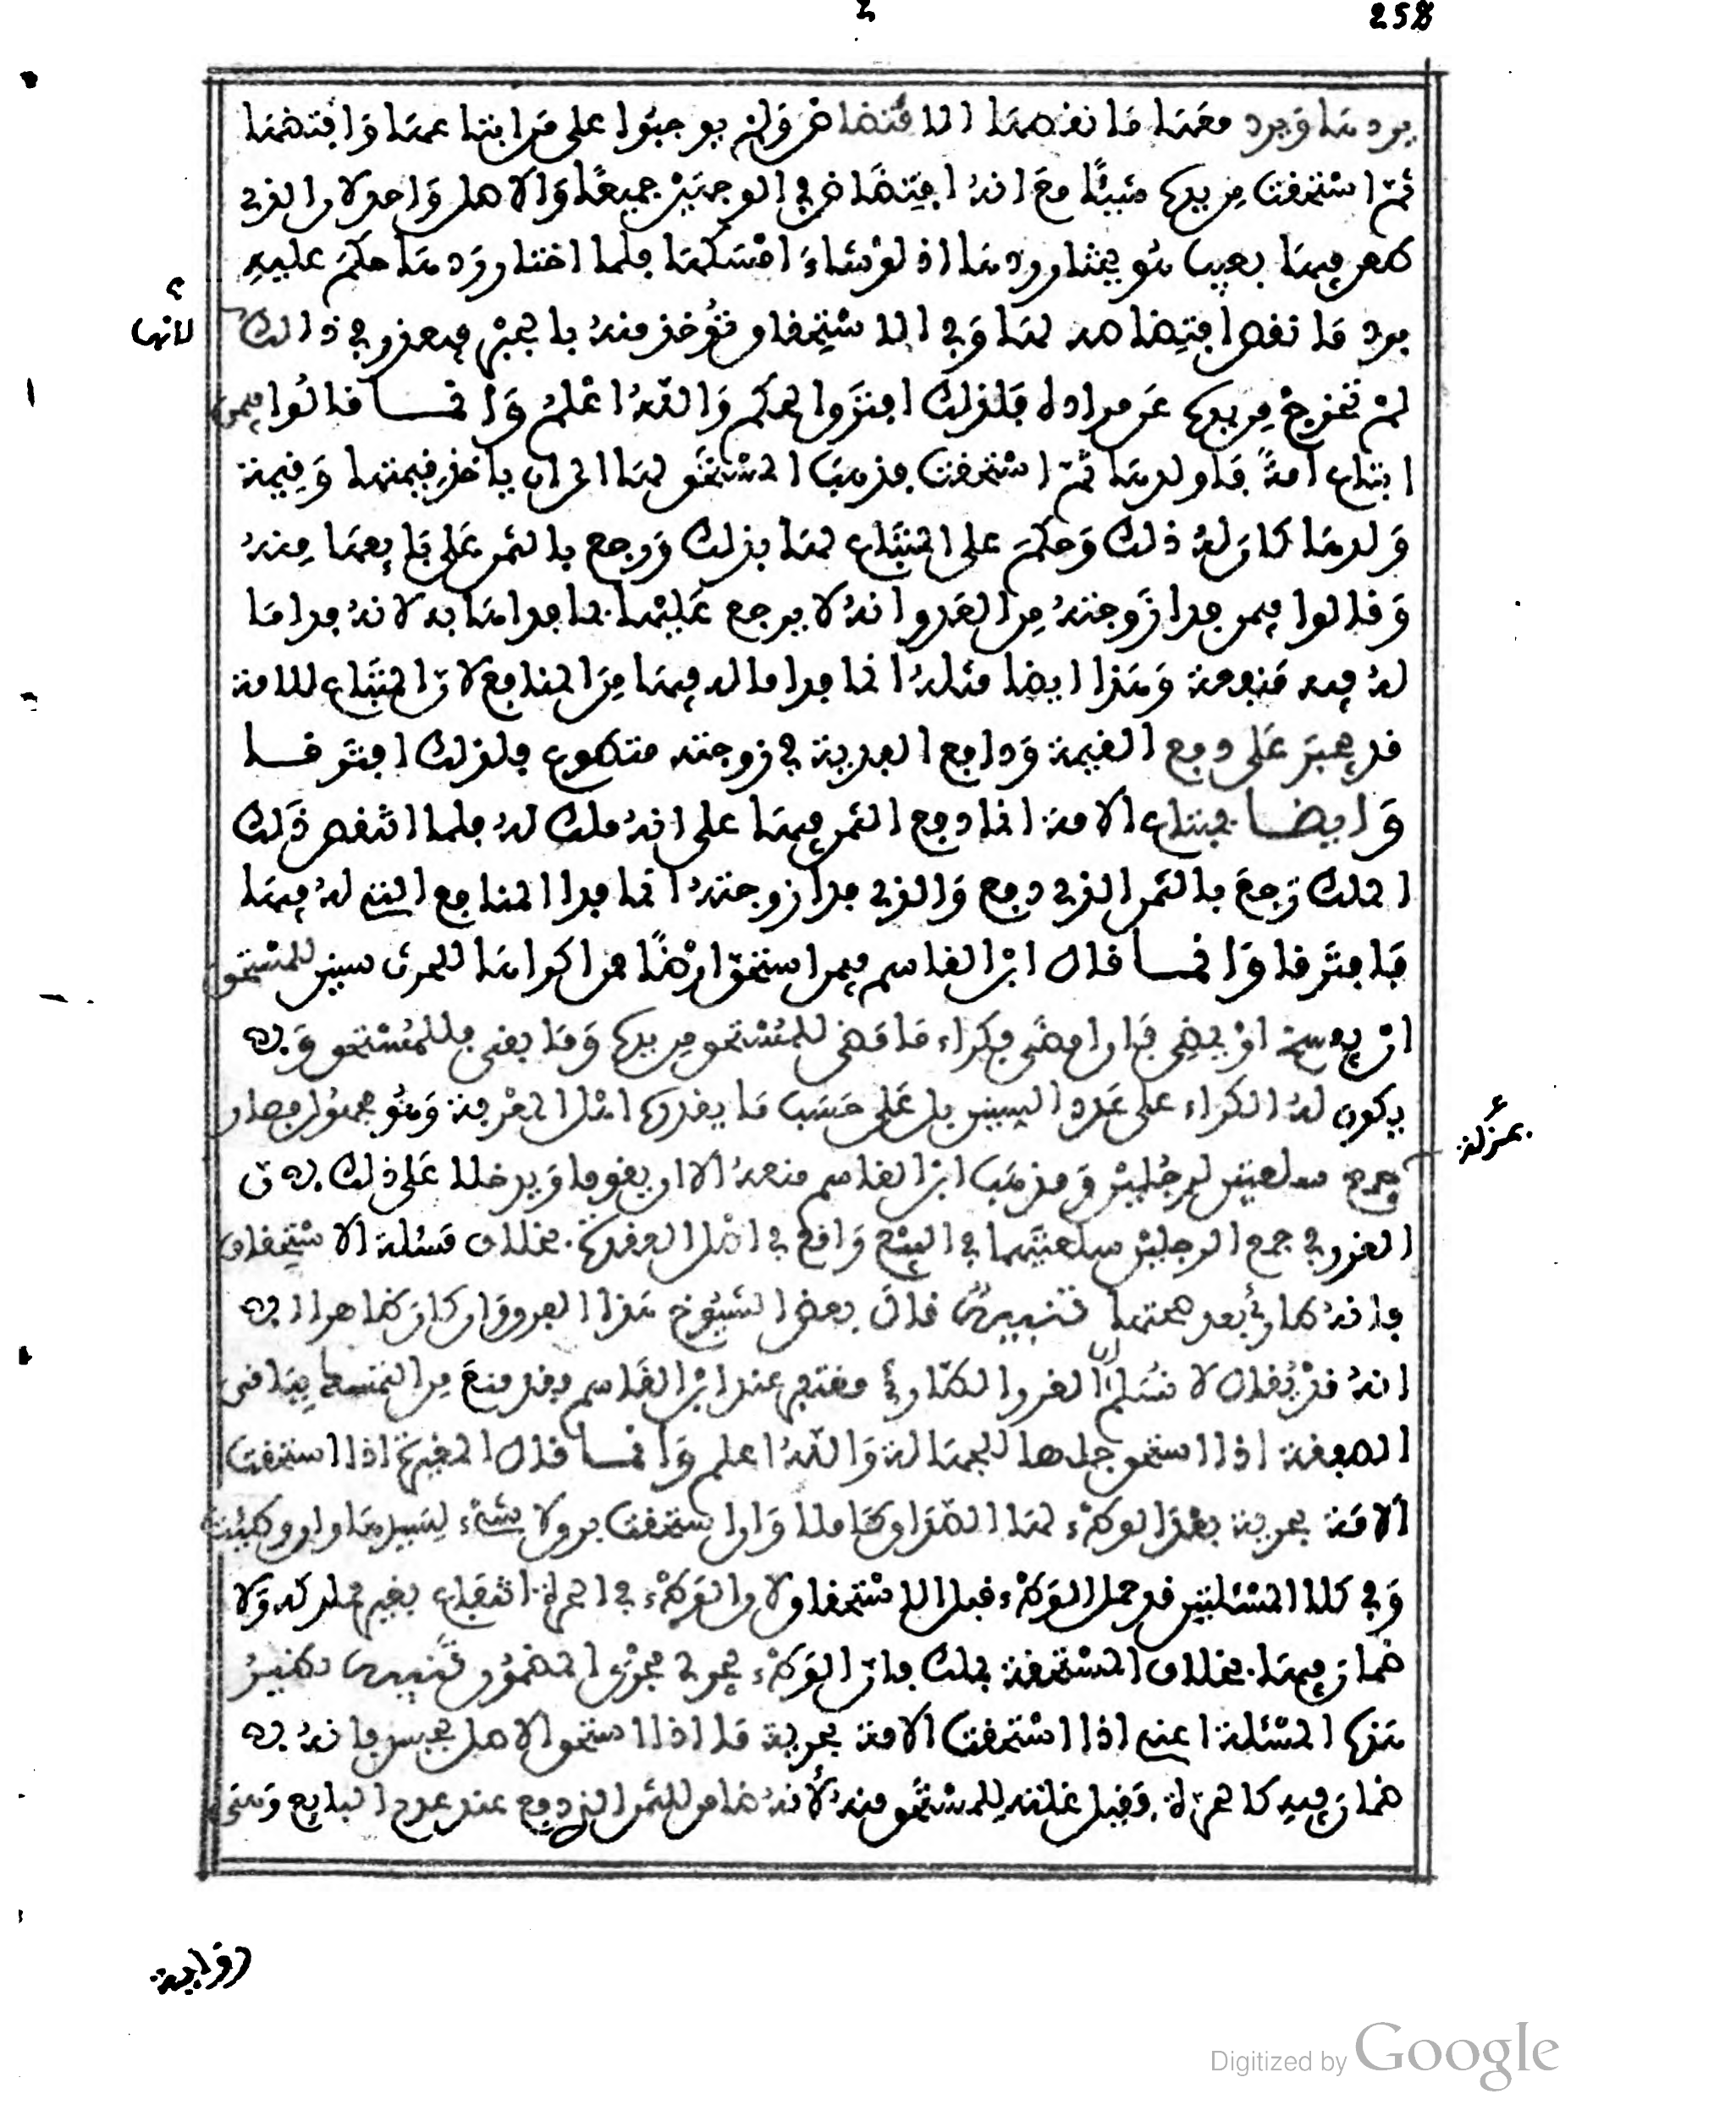 258
يردها ويرد معها ما نقصها الافتضاض ولم يوجبوا على من ابتاعها وافتضها
ثم استحقت من يده شيئا مع انه افتضاض في الوجهين جميعا والاصل واحد لان الذي
ظهر فيها بعيب هو يختار ردها اذ لو شاء امسكها فلما اختار ردها حكم عليه
برد ما نقص افتضاضه لها وفي الاستحقاق تؤخذ منه بالجبر فيعذر في ذالك
لانها
لم تخرج من يده عن مراده فلذلك افترق الحكم والله اعلم وانما قالوا فيمن
ابتاع امة فاولدها ثم استحقت فذهب المستحق لها الى ان ياخذ قيمتها وقيمة
ولدها كان له ذلك وحكم على المبتاع لها بذلك ورجع بالثمن على بايعها منه
وقالوا فيمن فدا زوجته من العدو انه لا يرجع عليها بما فداها به لانه فدا ما
له فيه منفعة وهذا ايضا مثله انما فدا ماله فيها من المنافع لان المبتاع للامة
قد جبر على دفع القيمة ودافع الفدية في زوجته متطوع فلذلك افترقا
وايضا مبتاع الامة انما دفع الثمن فيها على انه ملك له فلما انتقض ذلك
الملك رجع بالثمن الذي دفع والذي فدا زوجته انما فدا المنافع التي له فيها
فافترقا وانما قال ابن القاسم فيمن استحق ارضا قد اكراها المكري سنين للمستحق
ان يفسخ او يمضي فان امضى فكراء ما مضى للمستحق من يده وما بقي فللمستحق ولا
يكون له الكراء على عدد السنين بل على حسب ما يقدره اهل المعرفة وهو مجهول فصار
بمنزلة
جمع سلعتين لرجلين ومذهب ابن القاسم منعه الا ان يقوما ويدخلا على ذلك لان
الغرر في جمع الرجلين سلعتيهما في البيع واقع في اصل العقدة بخلاف مسئلة الاستحقاق
فانه طارئ بعد صحتها تنبيه قال بعض الشيوخ هذا الفرق وان كان ظاهرا الا
انه قد يقال لا نسلم ان الغرر الطارئ مغتفر عند ابن القاسم وقد منع من التمسك بباقي
الصفقة اذا استحق جلها للجهالة والله اعلم وانما قال المغيرة اذا استحقت
الامة بحرية بعد الوطء لها الصداق كاملا وان استحقت برق لا شيء لسيدها وان وطئت
وفي كلا المسئلتين قد حصل الوطء قبل الاستحقاق لان الوطء في الحرة انتفاع بغير ملك له ولا
ضمان فيها بخلاف المستحقة بملك فان الوطء يجري مجرى المضمون تنبيه نظير
هذه المسئلة اعني اذا استحقت الامة بحرية ما اذا استحق الاصل بحبس فانه لا
ضمان فيه كالحرة وقيل غلته للمستحق منه لانه ضامن للثمن الذي دفع عند عدم البايع وهي
رواية